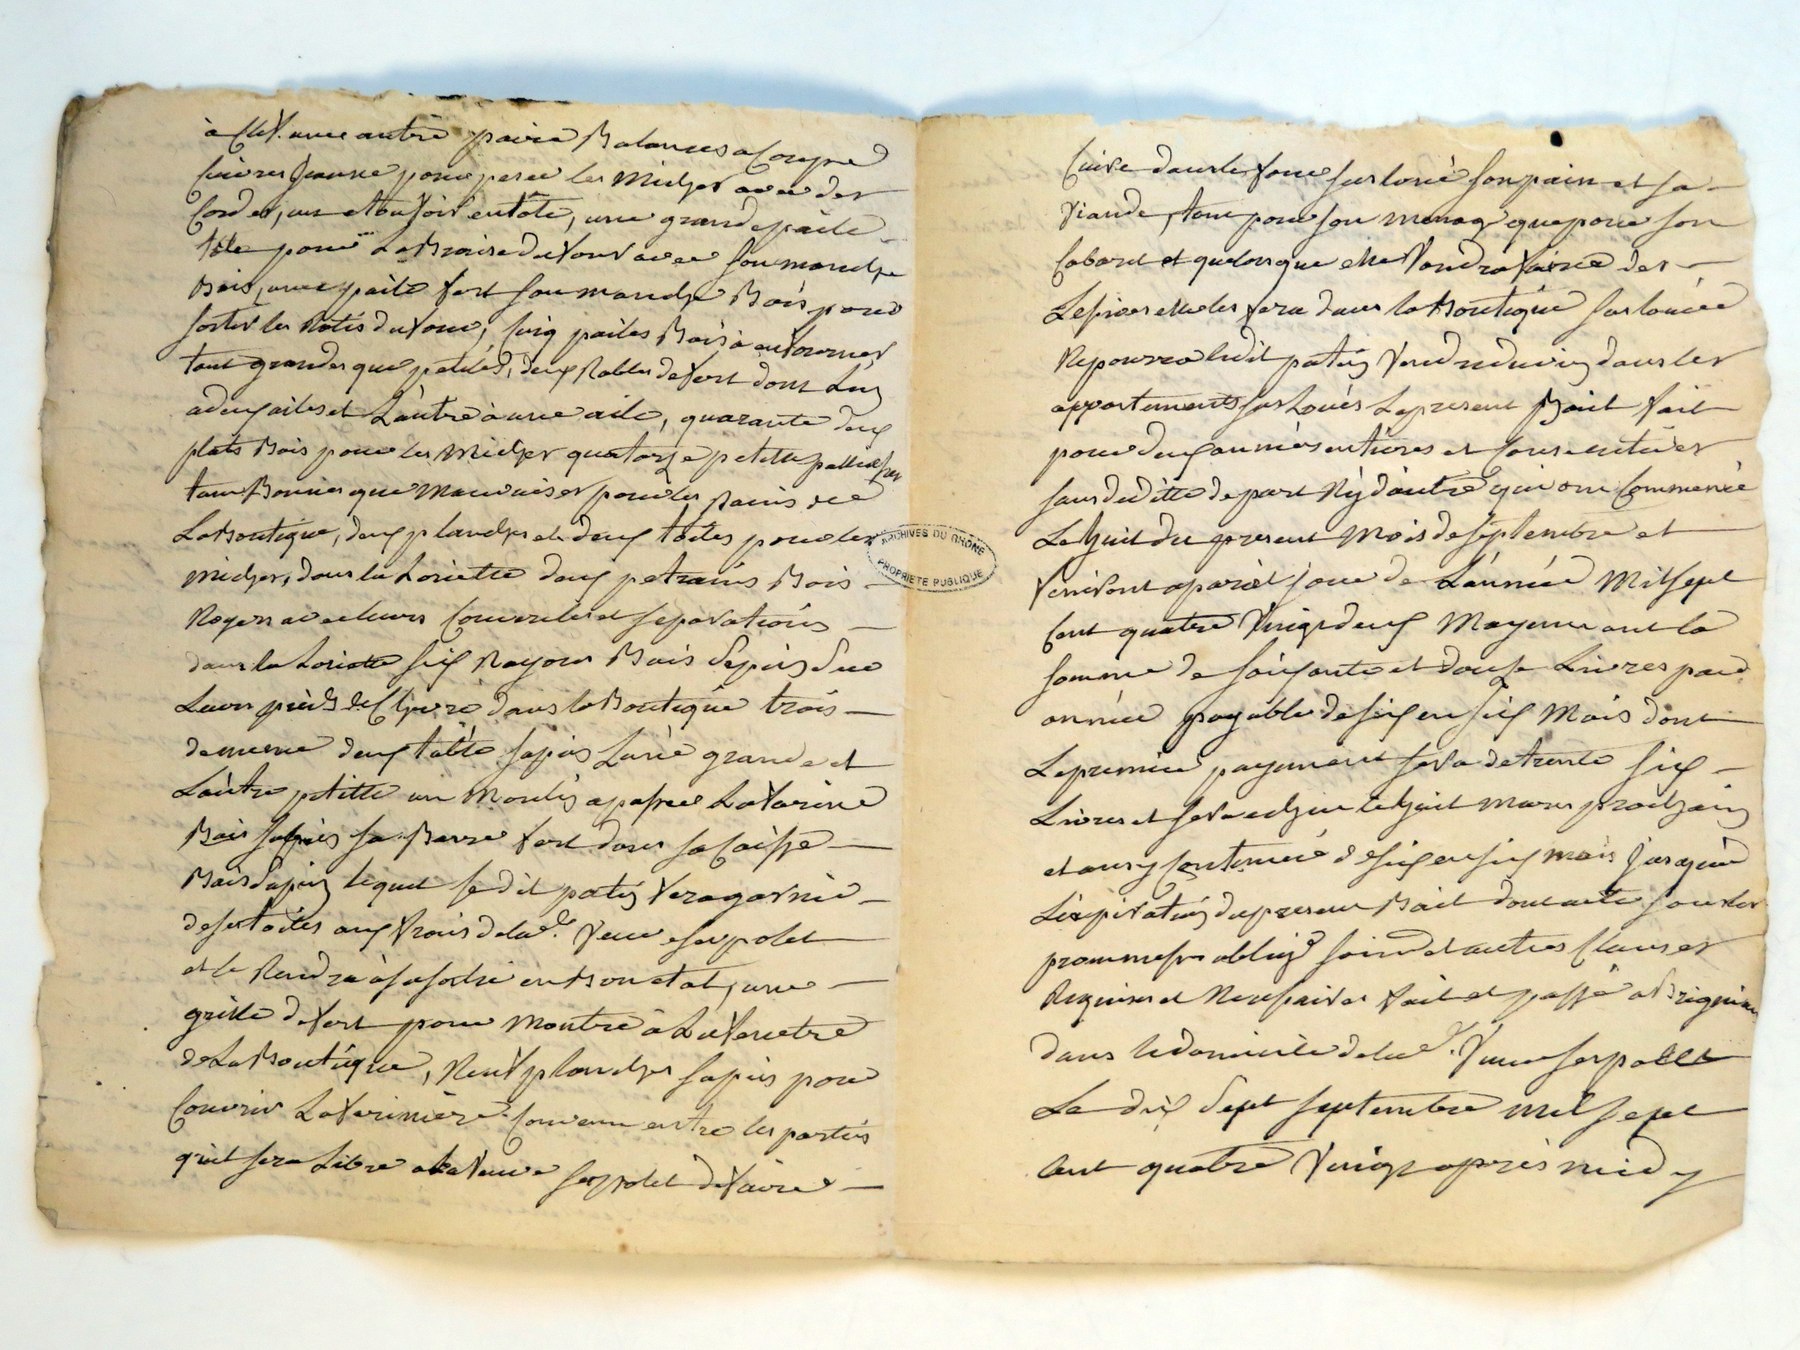 à clef. une autre paire Balances a Coupe
Cuivre Jaune pour peser les Miches avec des
Cordes, un etoufoir en tole, une grande paile
tole pour La Braise du four avec son manche
Bois, une paile fert son manche Bois pour
sortir les Rotis du four, sinq pailes Bois à enfourner
tant grandes que petites, deux Rables de fert dont L'un
a deux ailes et L'autre à une aile, quarante deux
plats Bois pour les Miches quatorze petitte
tant Bonnes que Mauvaises pour les pains de
La Boutique, deux planches et deux toiles pour les
miches, dans la Loriette deux petrains Bois
Noyer avec leurs Couvercles et separations
dans la Loriette six Rayons Bois Sapin sur
Leurs pieds de dans la Boutique trois
de meme deux table sapin L'une grande et
L'autre petitte un Moulin a passer La farine
Bois sapin sa Barre fert dans sa Caisse
Bois Sapin lequel ledit patin fera garnir
de ses toiles aux frais de lad. Veuve serpolet
et le Rendra à sa sortie en Bon etat, une
grille de fert pour Montre à La fenetre
de La Boutique, Neuf planches sapin pour
Couvrir La Convenu entre les parties
quil sera Libre a La Veuve serpolet de faire
Cuire dans le four sus loué son pain et sa
Viande, tant pour son menage que pour son
Cabaret et quelorsque elle Voudra faire des
Lessives elle les fera dans la Boutique sus louée
Ne pourra ledit patin Vendre du vin dans les
appartements sus Loués Le present Bail fait
pour deux années entieres et consecutives
sans deditte de part Ny d'autre qui ont Commencé
Le huit du present Mois de septembre et
finiront a pareil jour de L'année Mil sept
Cent quatre Vingt deux Moyennant la
somme de soixante et douze Livres par
année payable de six en six Mois dont
Le premier payement sera de trente six
Livres et sera echue le huit mars prochain
et ainsy Continué de six en six mois jusqu'a
L'expiration du present Bail dont acte sous les
promesses oblig.s soum et autres Clauses
Requises et Necessaires fait et passé a Brignais
dans le domicile de lad. Veuve serpollet
Le dix Sept septembre mil sept
Cent quatre Vingt après midy
ARCHIVES DU RHÔNE
PROPRIÉTÉ PUBLIQUE